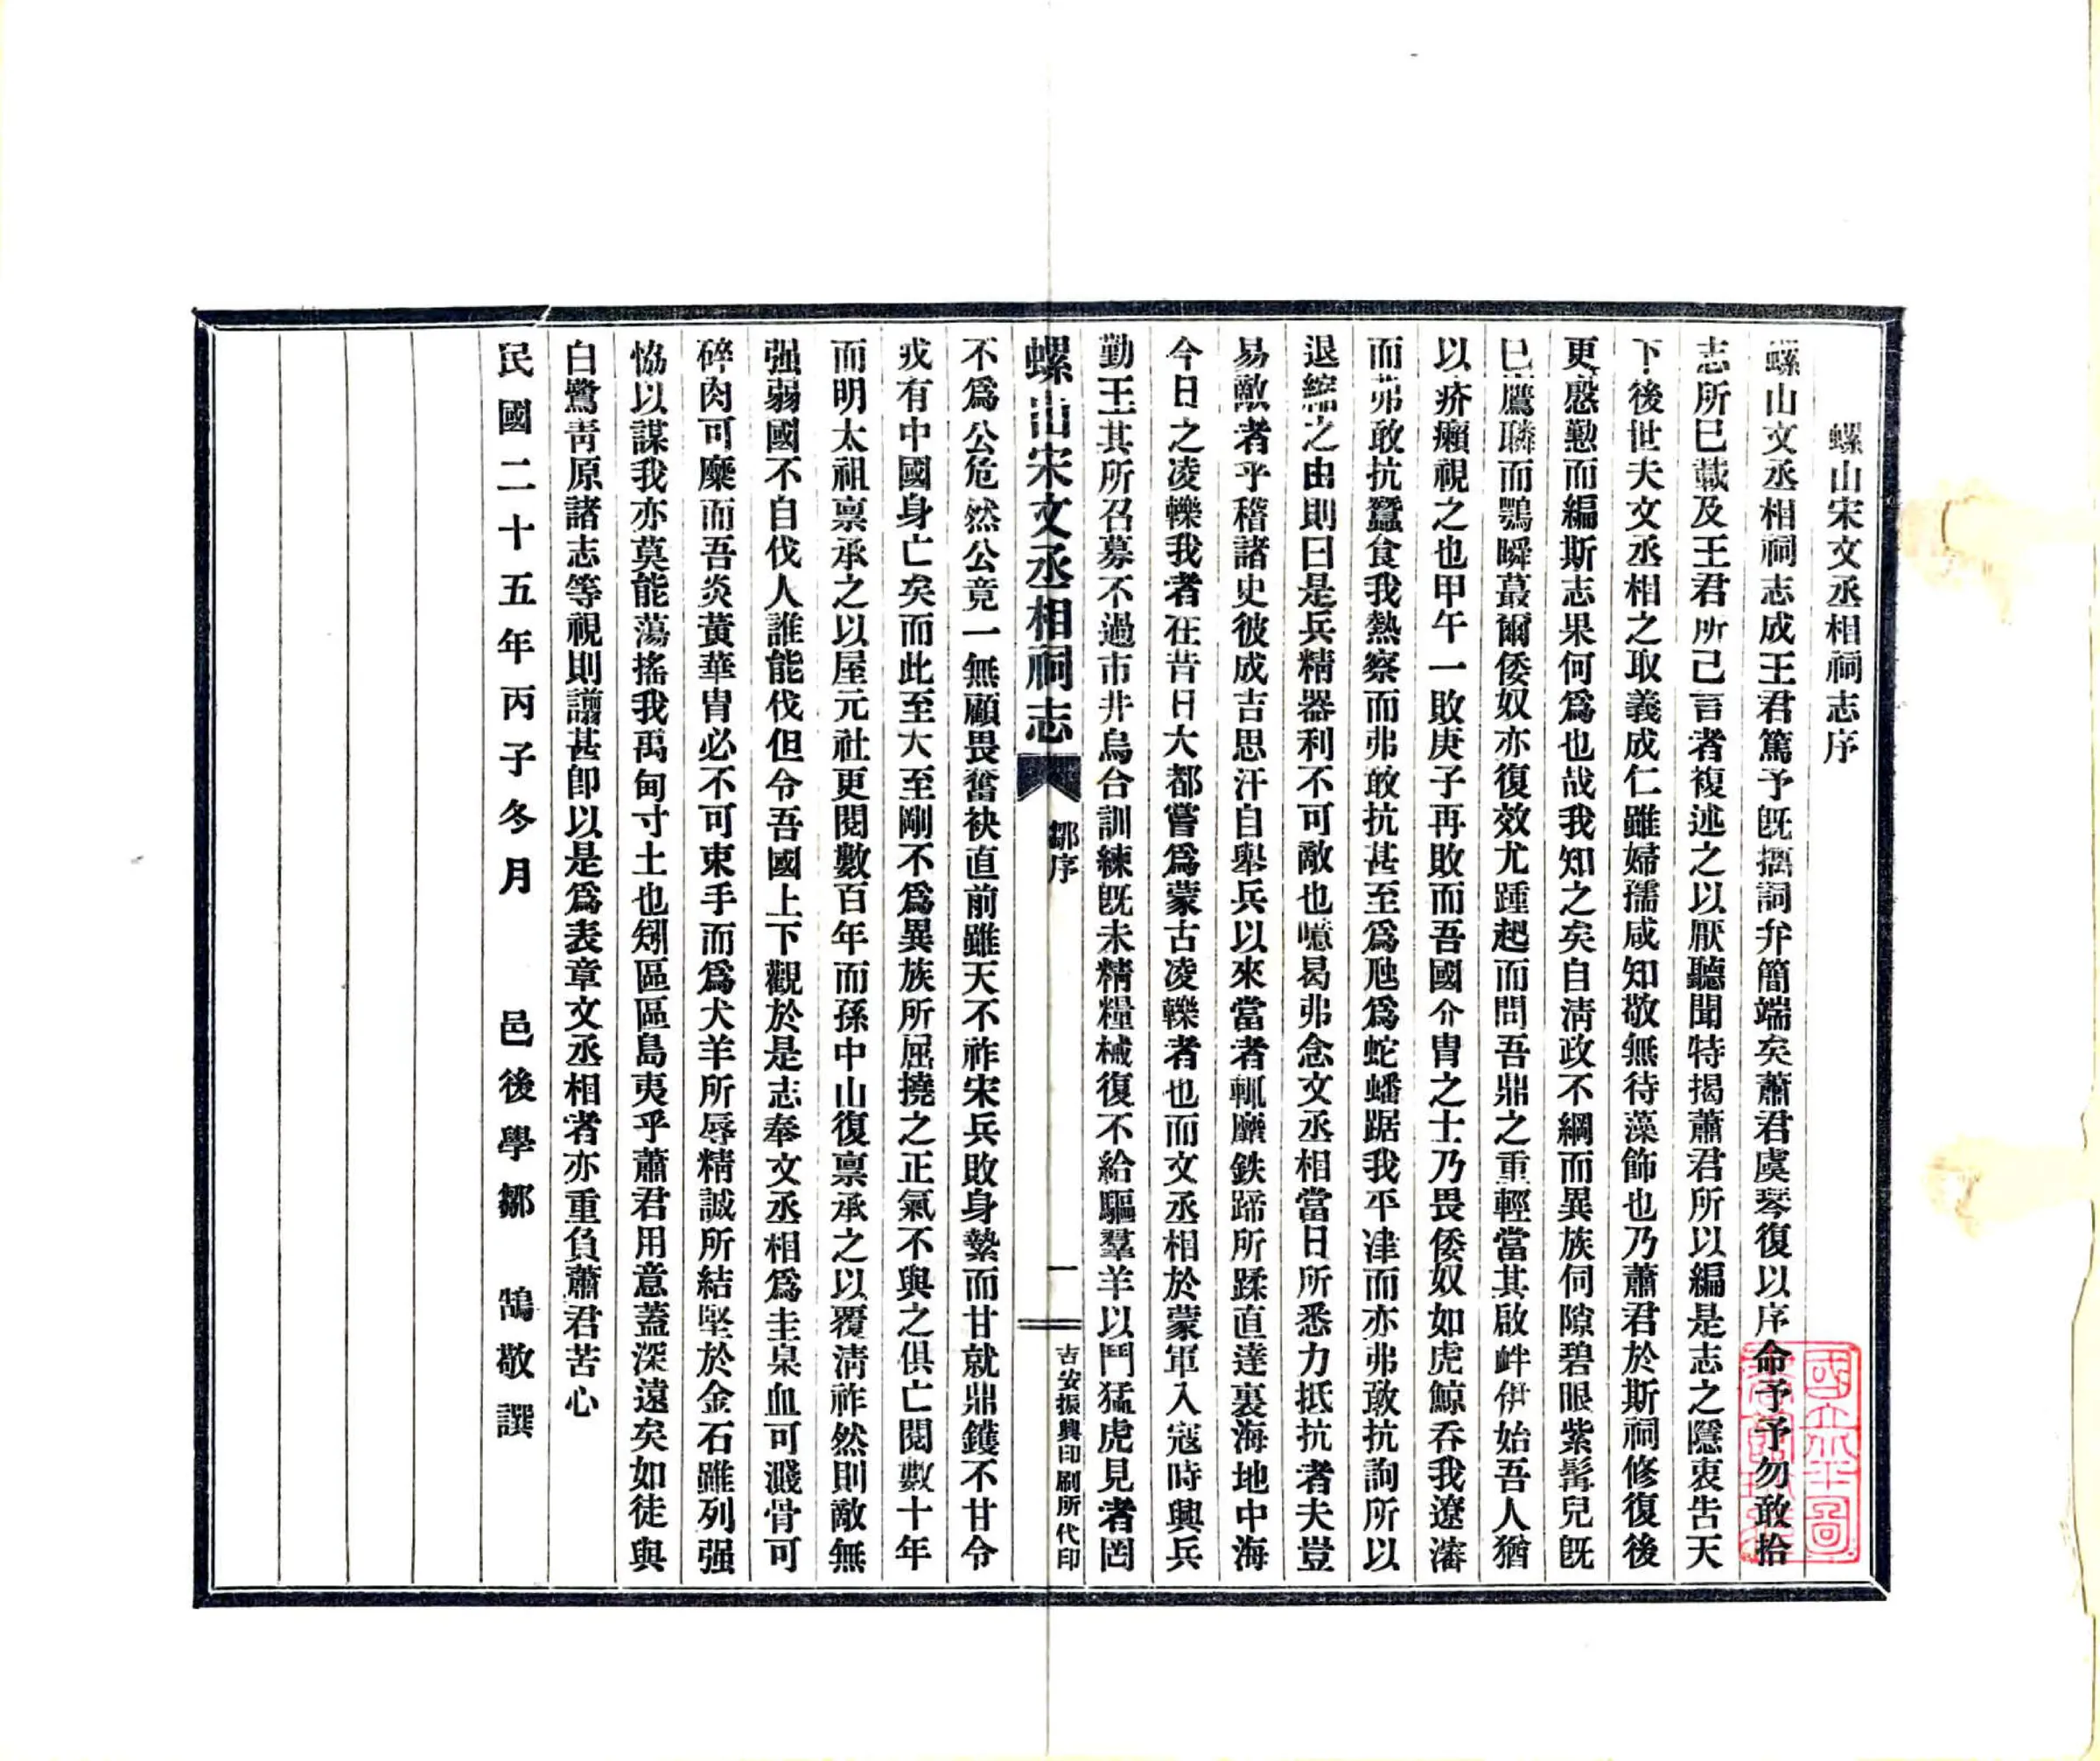 螺山宋文丞相祠志序
螺山文丞相祠志成王君篤予旣摛詞弁簡端矣蕭君虞琴復以序命予予勿敢拾
志所已載及王君所已言者複述之以厭聽聞特揭蕭君所以編是志之隱衷告天
下後世夫文丞相之取義成仁雖婦孺咸知敬無待藻飾也乃蕭君於斯祠修復後
更慇懃而編斯志果何爲也哉我知之矣自淸政不綱而異族伺隙碧眼紫髯兒旣
已鷹瞵而鶚瞬蕞爾倭奴亦復效尤踵起而問吾鼎之重輕當其啟衅伊始吾人猶
以疥癩視之也甲午一敗庚子再敗而吾國介胄之士乃畏倭奴如虎鯨吞我遼瀋
而弗敢抗蠶食我熱察而弗敢抗甚至爲虺爲蛇蟠踞我平津而亦弗敢抗詢所以
退縮之由則曰是兵精器利不可敵也噫曷弗念文丞相當日所悉力抵抗者夫豈
易敵者乎稽諸史彼成吉思汗自舉兵以來當者輒靡鉄蹄所蹂直達裏海地中海
今日之凌轢我者在昔日大都嘗爲蒙古凌轢者也而文丞相於蒙軍入寇時興兵
勤王其所召募不過市井烏合訓練旣未精糧械復不給驅羣羊以鬥猛虎見者罔
螺山宋文丞相祠志 鄒序 一 吉安振興印刷所代印
不爲公危然公竟一無顧畏奮袂直前雖天不祚宋兵敗身縶而甘就鼎鑊不甘令
戎有中國身亡矣而此至大至剛不爲異族所屈撓之正氣不與之俱亡閱數十年
而明太祖禀承之以屋元社更閱數百年而孫中山復禀承之以覆淸祚然則敵無
强弱國不自伐人誰能伐但令吾國上下觀於是志奉文丞相爲圭臬血可濺骨可
碎肉可糜而吾炎黃華胄必不可束手而爲犬羊所辱精誠所結堅於金石雖列强
恊以謀我亦莫能蕩搖我禹甸寸土也矧區區島夷乎蕭君用意蓋深遠矣如徒與
白鷺靑原諸志等視則譾甚卽以是爲表章文丞相者亦重負蕭君苦心
民國二十五年丙子冬月 邑後學鄒 鵠敬譔